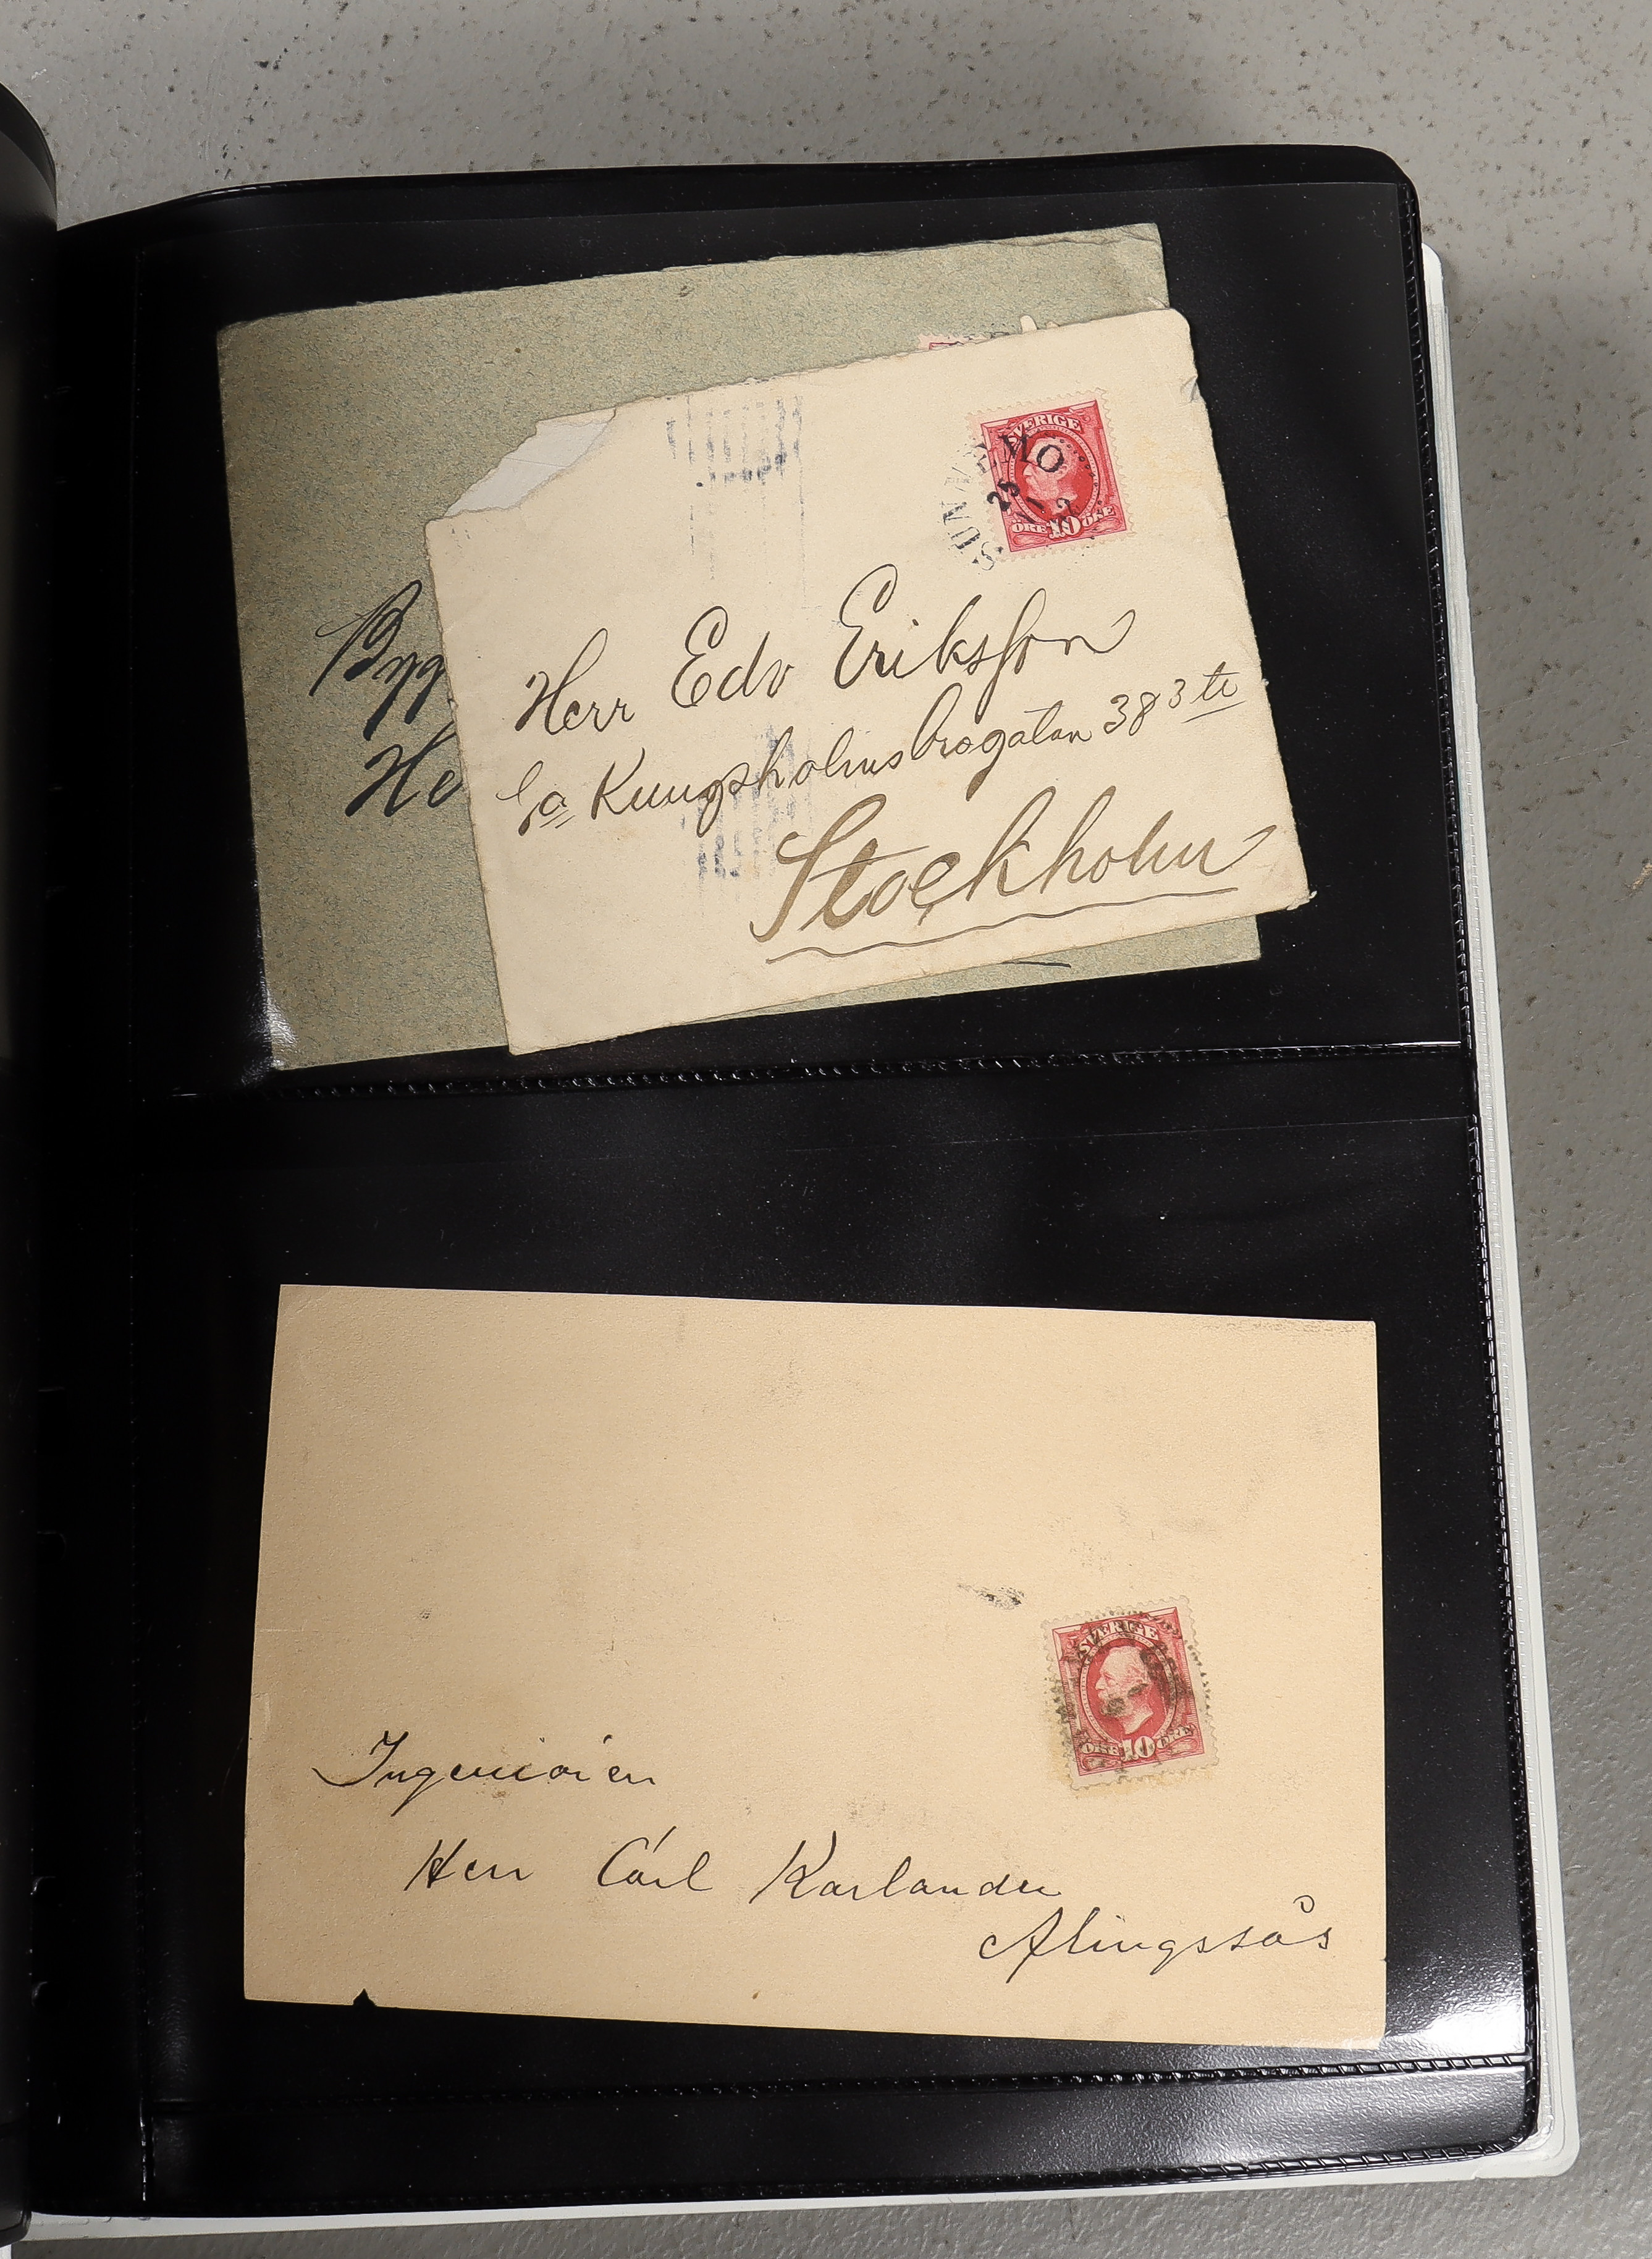 SVERIGE
SUNNEMO
23
11
ÖRE 10 ÖRE
Bygg
He
Herr Edv Eriksson
c/o Kungsholmsbrogatan 38 3 tr
Stockholm
SVERIGE
ÖRE 10 ÖRE
Ingeniören
Herr Carl Karlander
Alingsås